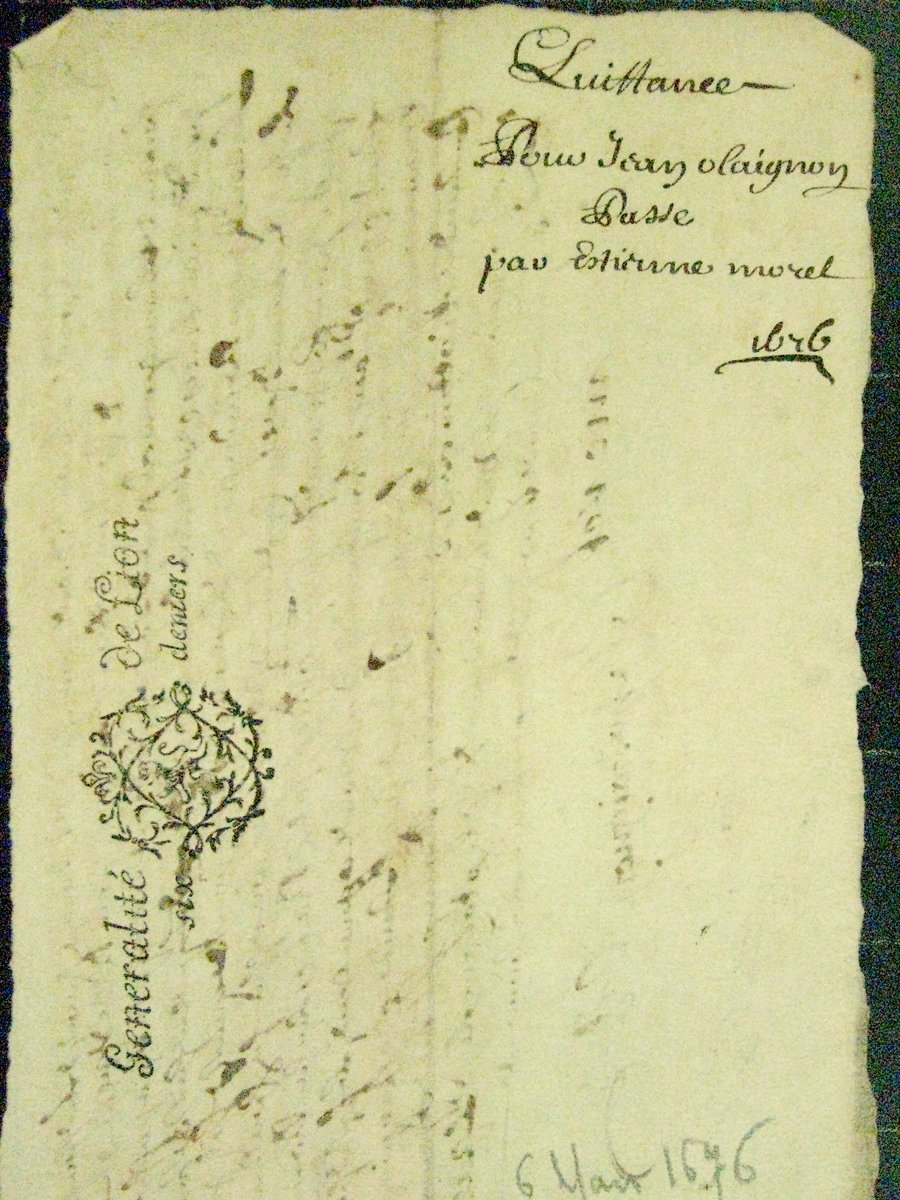 Quittance
Pour Jean olaignon
Passe
par Estienne morel
1676
Generalité de Lion
six deniers
6 Mars 1676